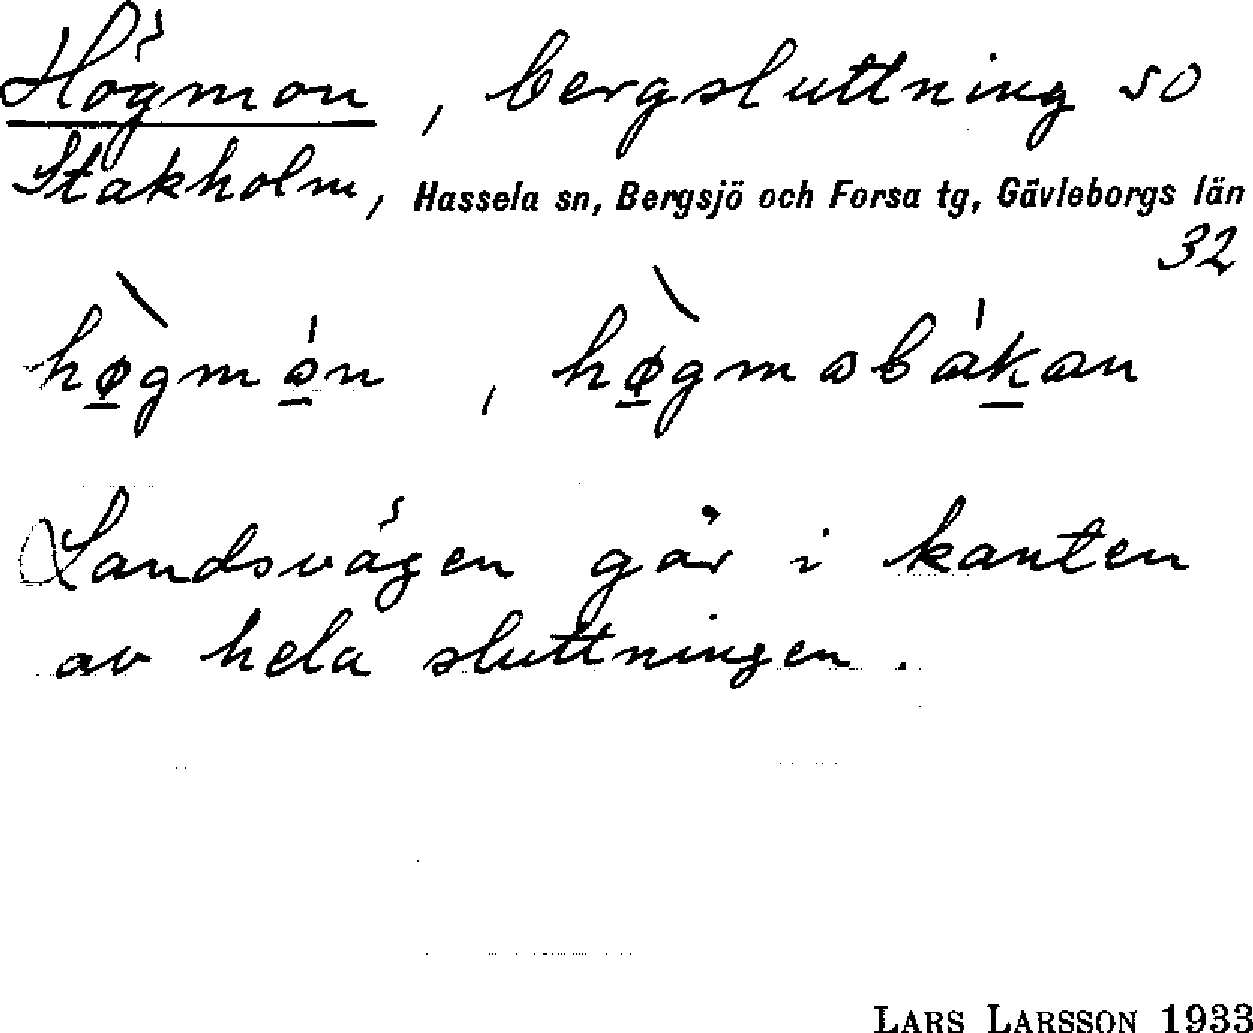 Högmon, bergsluttning SO
Stakholm, Hassela sn, Bergsjö och Forsa tg, Gävleborgs län
32
hø̀gmón, hø̀gmobákan
Landsvägen går i kanten
av hela sluttningen.
LARS LARSSON 1933